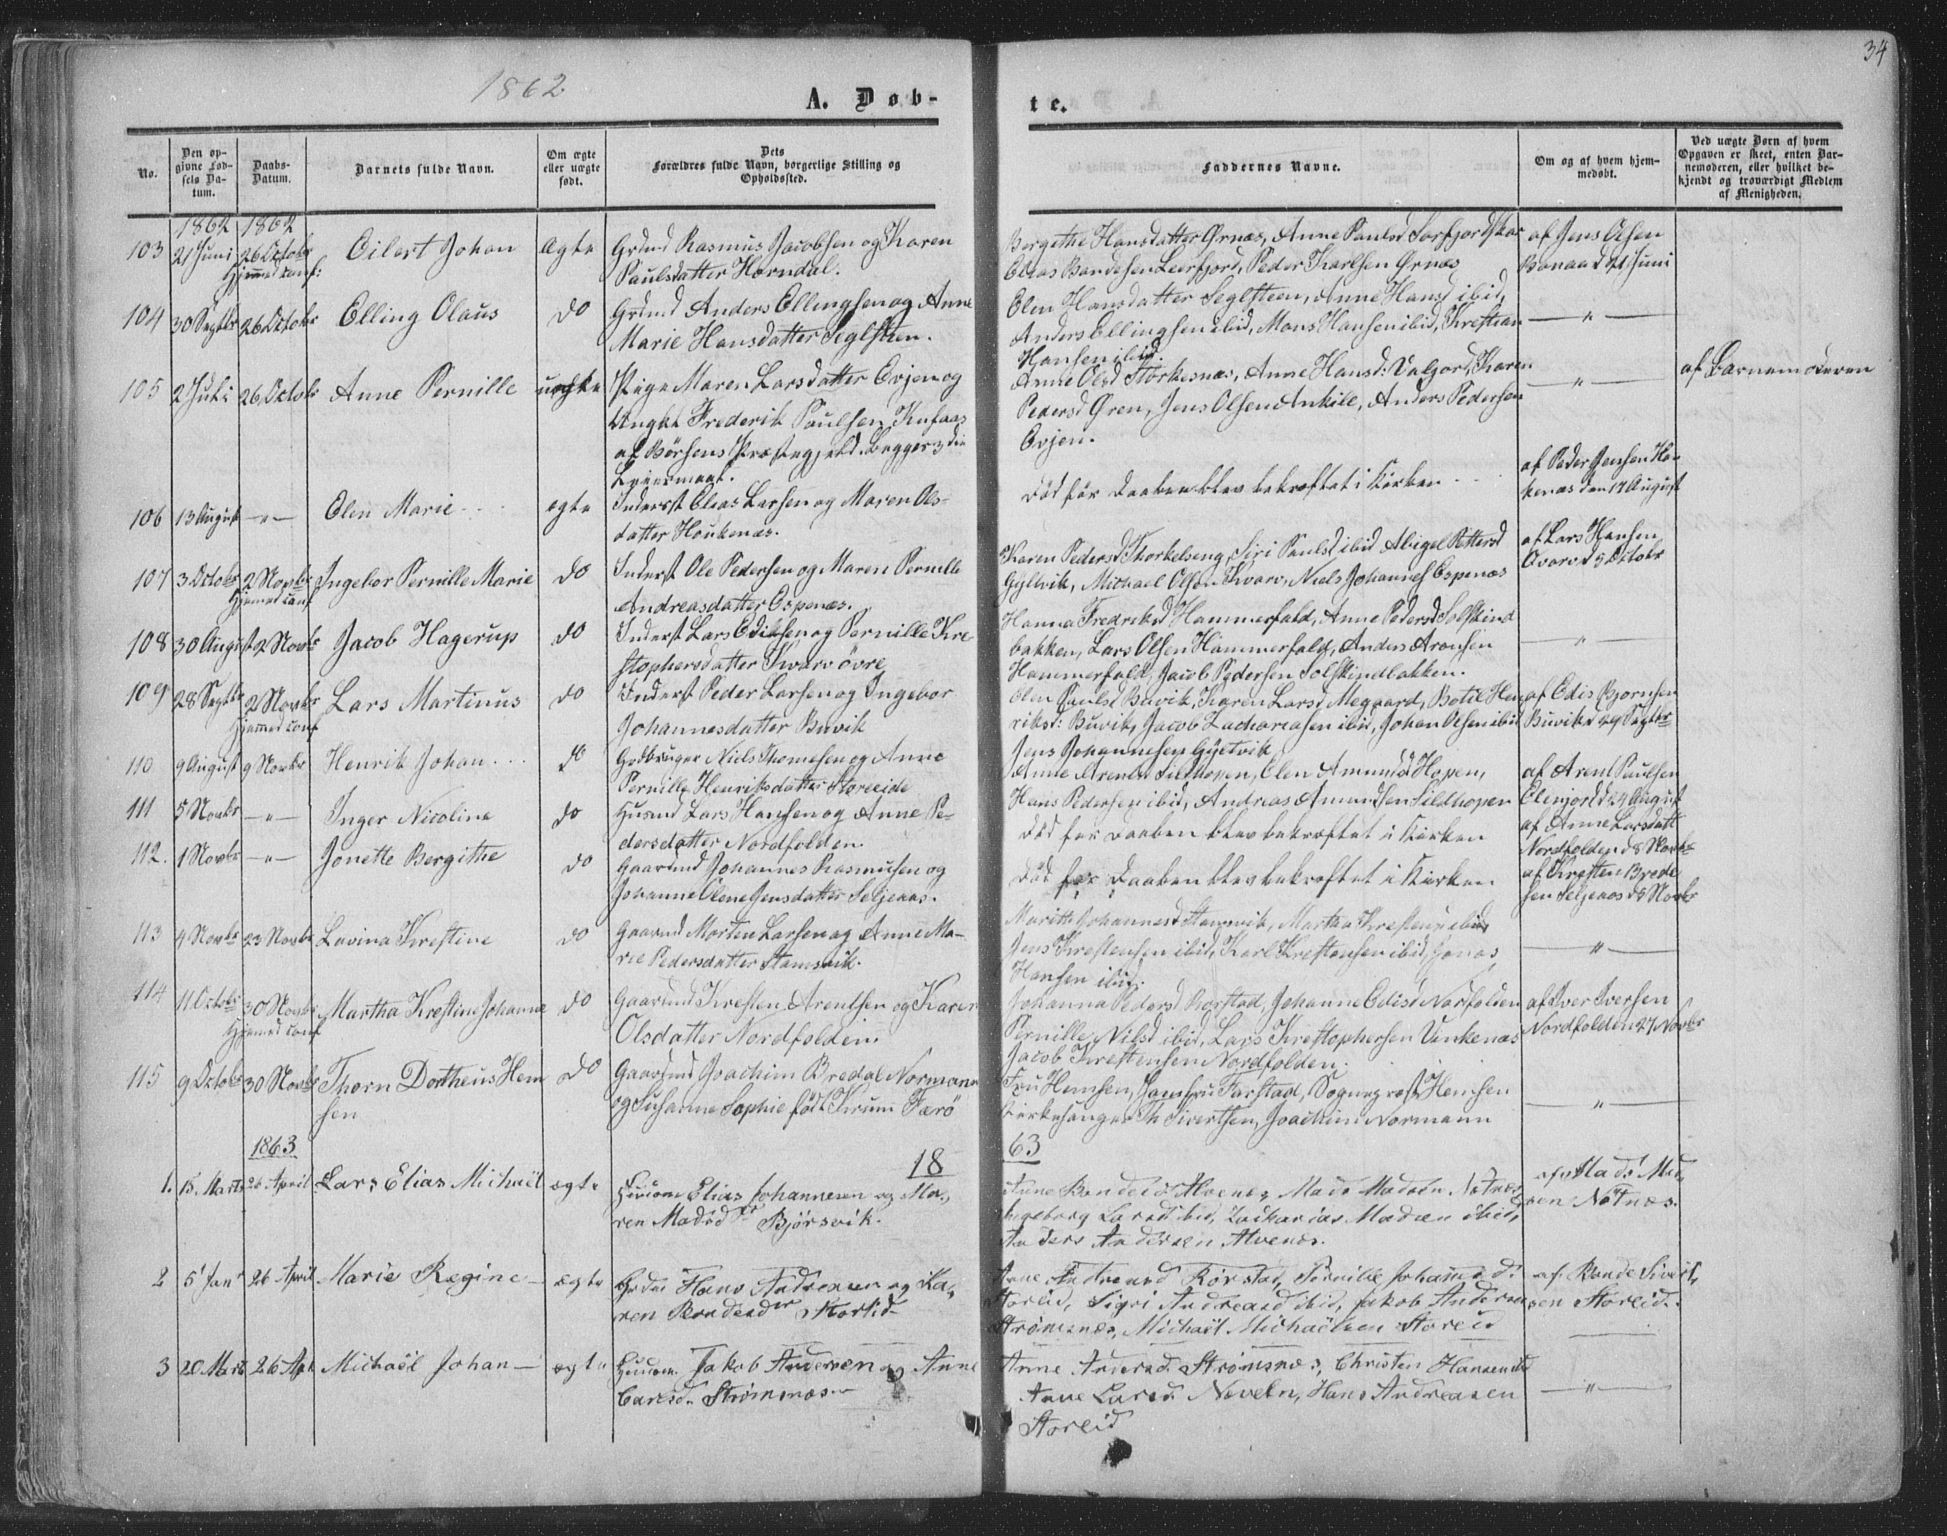 34
1862
A. Døb-
te.
No.
Den op-
givne Fød-
sels Da-
tum.
Daabs-
Datum.
Barnets fulde Navn.
Om ægte
eller uægte
født.
Dets
Forældres fulde Navn, borgerlige Stilling og
Opholdssted.
Faddernes Navne.
Om og af hvem hjem-
medøbt.
Ved uægte Børn af hvem
Opgaven er skeet, enten Bar-
nemoderen, eller hvilket be-
kjendt og troværdigt Medlem
af Menigheden.
1862 1862
103 21 Juni 26 Octobr Eilert Johan ægte Grdmd Rasmus Jacobsen og Karen
Hjemmed conf:
Paulsdatter Horndal.
Bergithe Hansdatter Ørnæs, Anne Paulsd Sørfjordskar
Elias Bendesen Leerfjord, Peder Karlsen Ørnæs
af Jens Olsen
Bonaa d 21 Juni
104 30 Septbr 26 Octobr Elling Olaus do Grdmd Anders Ellingsen og Anne
Marie Hansdatter Seglsteen.
Olen Hansdatter Seglsteen, Anne Hansd ibid,
Anders Ellingsen ibid, Mons Hansen ibid, Krestian
Hansen ibid.
— " —
105 2 Juli 26 Octobr Anne Pernille uægte Pige Maren Larsdatter Evjen og
Ungkl Frederik Paulsen Knfaas
af Børsens Præstegjeld. Begges 3die
Leiermaal.
Anne Olsd Størkesnæs, Anne Hansd: Valjord, Karen
Pedersd Øren, Jens Olsen Ankile, Anders Pedersen
Evjen.
— " —
af Barnemoderen
106 13 August — " — Olen Marie ægte Inderst Elias Larsen og Maren Ols-
datter Houkenæs.
Død før Daaben blev bekræftet i Kirken
af Peder Jensen Ho-
kenæs den 17 August
107 3 Octobr 2 Novbr Ingebor Pernille Marie do Inderst Ole Pedersen og Maren Pernille
Hjemmed conf
Andreasdatter Espenæs.
Karen Pedersd Thorkelseng, Siri Paulsd ibid Abigel Pettersd
Gyltvik, Michael Olsen Kvarv, Niels Johannes Espenæs
af Lars Hansen
Qvarv d 5 Octobr
108 30 August 2 Novbr Jacob Hagerup do Inderst Lars Edissen og Pernille Kre-
stophersdatter Kvarv øvre
Hanna Fredriksd Hammerfald, Anne Pedersd Solskind
bakken, Lars Olsen Hammerfald, Anders Aronsen
Hammerfald, Jacob Pedersen Solskindbakken.
— " —
109 28 Septbr 2 Novbr Lars Martinus do Inderst Peder Larsen og Ingebor
Hjemmed conf
Johannesdatter Buvik
Olen Paulsd Buvik, Karen Larsd Megaard, Botil Hen
riksd: Buvik, Jacob Zachariasen ibid, Johan Olsen ibid
Jens Johannesen Gyltvik
af Edis Bjørnsen
Buvik d 29 Septbr
110 9 August 9 Novbr Henrik Johan do Gdbruger Niels Thomesen og Anne
Pernille Henriksdatter Storeeide
Anne Arentsd Sildhopen, Olen Amundsd Hopen,
Hans Pedersen ibid, Andreas Amundsen Sildhopen
af Arent Paulsen
Elenjord d 24 August
111 5 Novbr — " — Inger Nicoline do Husmd Lars Hansen og Anne Pe-
dersdatter Nordfolden
Død før Daaben blev bekræftet i Kirken
af Anne Larsdatt
Nordfolden d 8 Novbr
112. 1 Novbr — " — Jonette Bergithe do Gaardmd Johannes Rasmusen og
Johanne Olene Jensdatter Seljeaas.
Død før Daaben blev bekræftet i Kirken
af Kresten Brede
sen Seljeaas d 8 Novbr
113 4 Novbr 23 Novbr Lovina Krestine do Gaardmd Morten Larsen og Anne Ma-
rie Pedersdatter Stamsvik.
Marith Johannesd Stamsvik, Martha Krestensd ibid
Jens Krestensen ibid, Karl Krestensen ibid, Jonas
Hansen ibid.
— " —
114 11 Octobr 30 Novbr Martha Krestine Johanne do Gaardmd Kresten Arentsen og Karen
Hjemmed conf
Olsdatter Nordfolden.
Johanna Pedersd Rørstad, Johanne Edisd Norfolden
Pernille Nilsd ibid, Lars Krestophersen Vinkenæs
Jacob Krestensen Nordfolden.
af Iver Iversen
Nordfolden 27 Novbr
115 9 Octobr 30 Novbr Thorn Dortheus Hem
sen
do Gaardmd Joachim Bredal Normann
og Susanne Sophie født Krum Færø
Fru Hemsen, Jomfru Farstad, Sognepræst Hemsen
Kirkesanger Th Sivertsen, Joachim Normann
— " —
1863
18 63
1. 15. Marts 26 April Lars Elias Michaël ægte Elias Johannesen og Ma-
ren Madsdtr Bjørsvik.
Anne Bendesd Alvenes, Mads Madsen Nøtnæs,
Ingeborg Larsd ibid, Zacharias Madsen ibid,
Anders Andersen Alvenes.
af Mads Mad-
sen Nøtnæs.
2 5' Janr 26 April Marie Regine — ægte Hans Andreasen og Ka-
ren Bendesdtr Storlid
Anne Andreasd Rørstad, Pernille Johannesd
Storlid, Sigri Andreasd ibid, Jakob Andersen
Strømsnæs, Michaël Michaelsen Storlid
af Bende Sivert-
sen Storlid.
3 20 Marts 26 Apr Michaël Johan — ægte Jakob Andersen og Anne
Larsd. Strømsnæs.
Anne Andersd. Strømsnæs, Christen Hansen ibd
Anne Larsd. Neveln, Hans Andreasen
Storlid
— " —